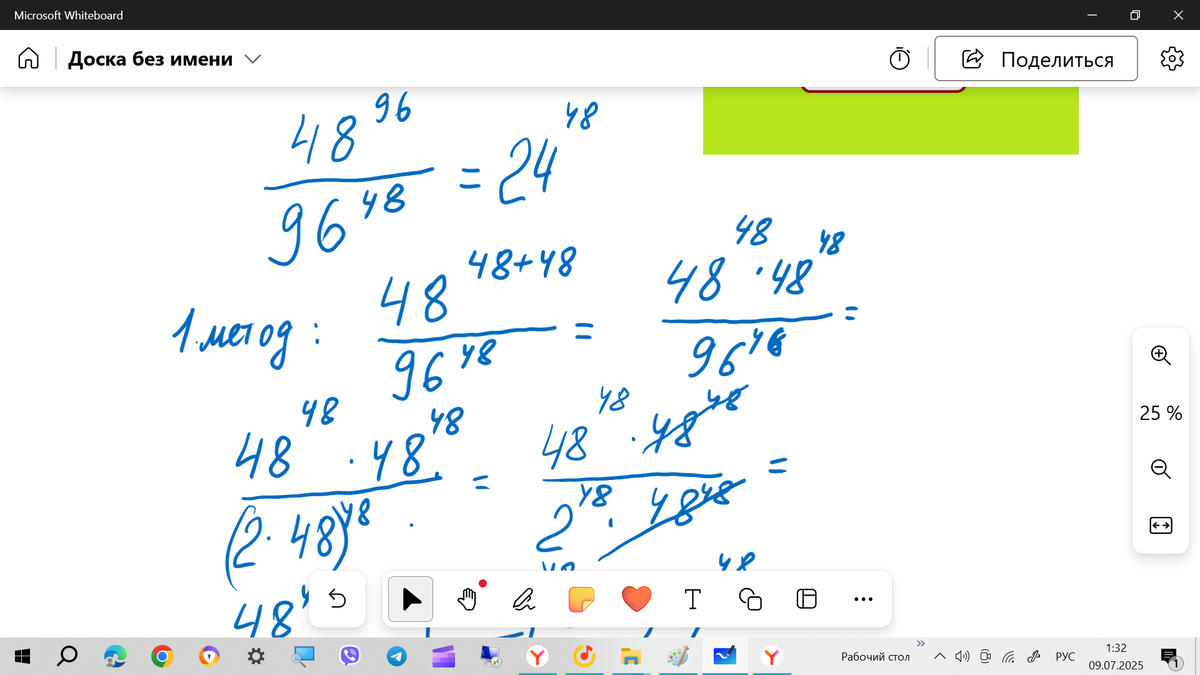 Microsoft Whiteboard
Доска без имени
Поделиться
48^96 / 96^48 = 24^48
1.метод: 48^(48+48) / 96^48 = 48^48 · 48^48 / 96^48 =
48^48 · 48^48 / (2·48)^48 = 48^48 · 48^48 / 2^48 · 48^48 =
48
25 %
Рабочий стол
РУС
1:32
09.07.2025
1